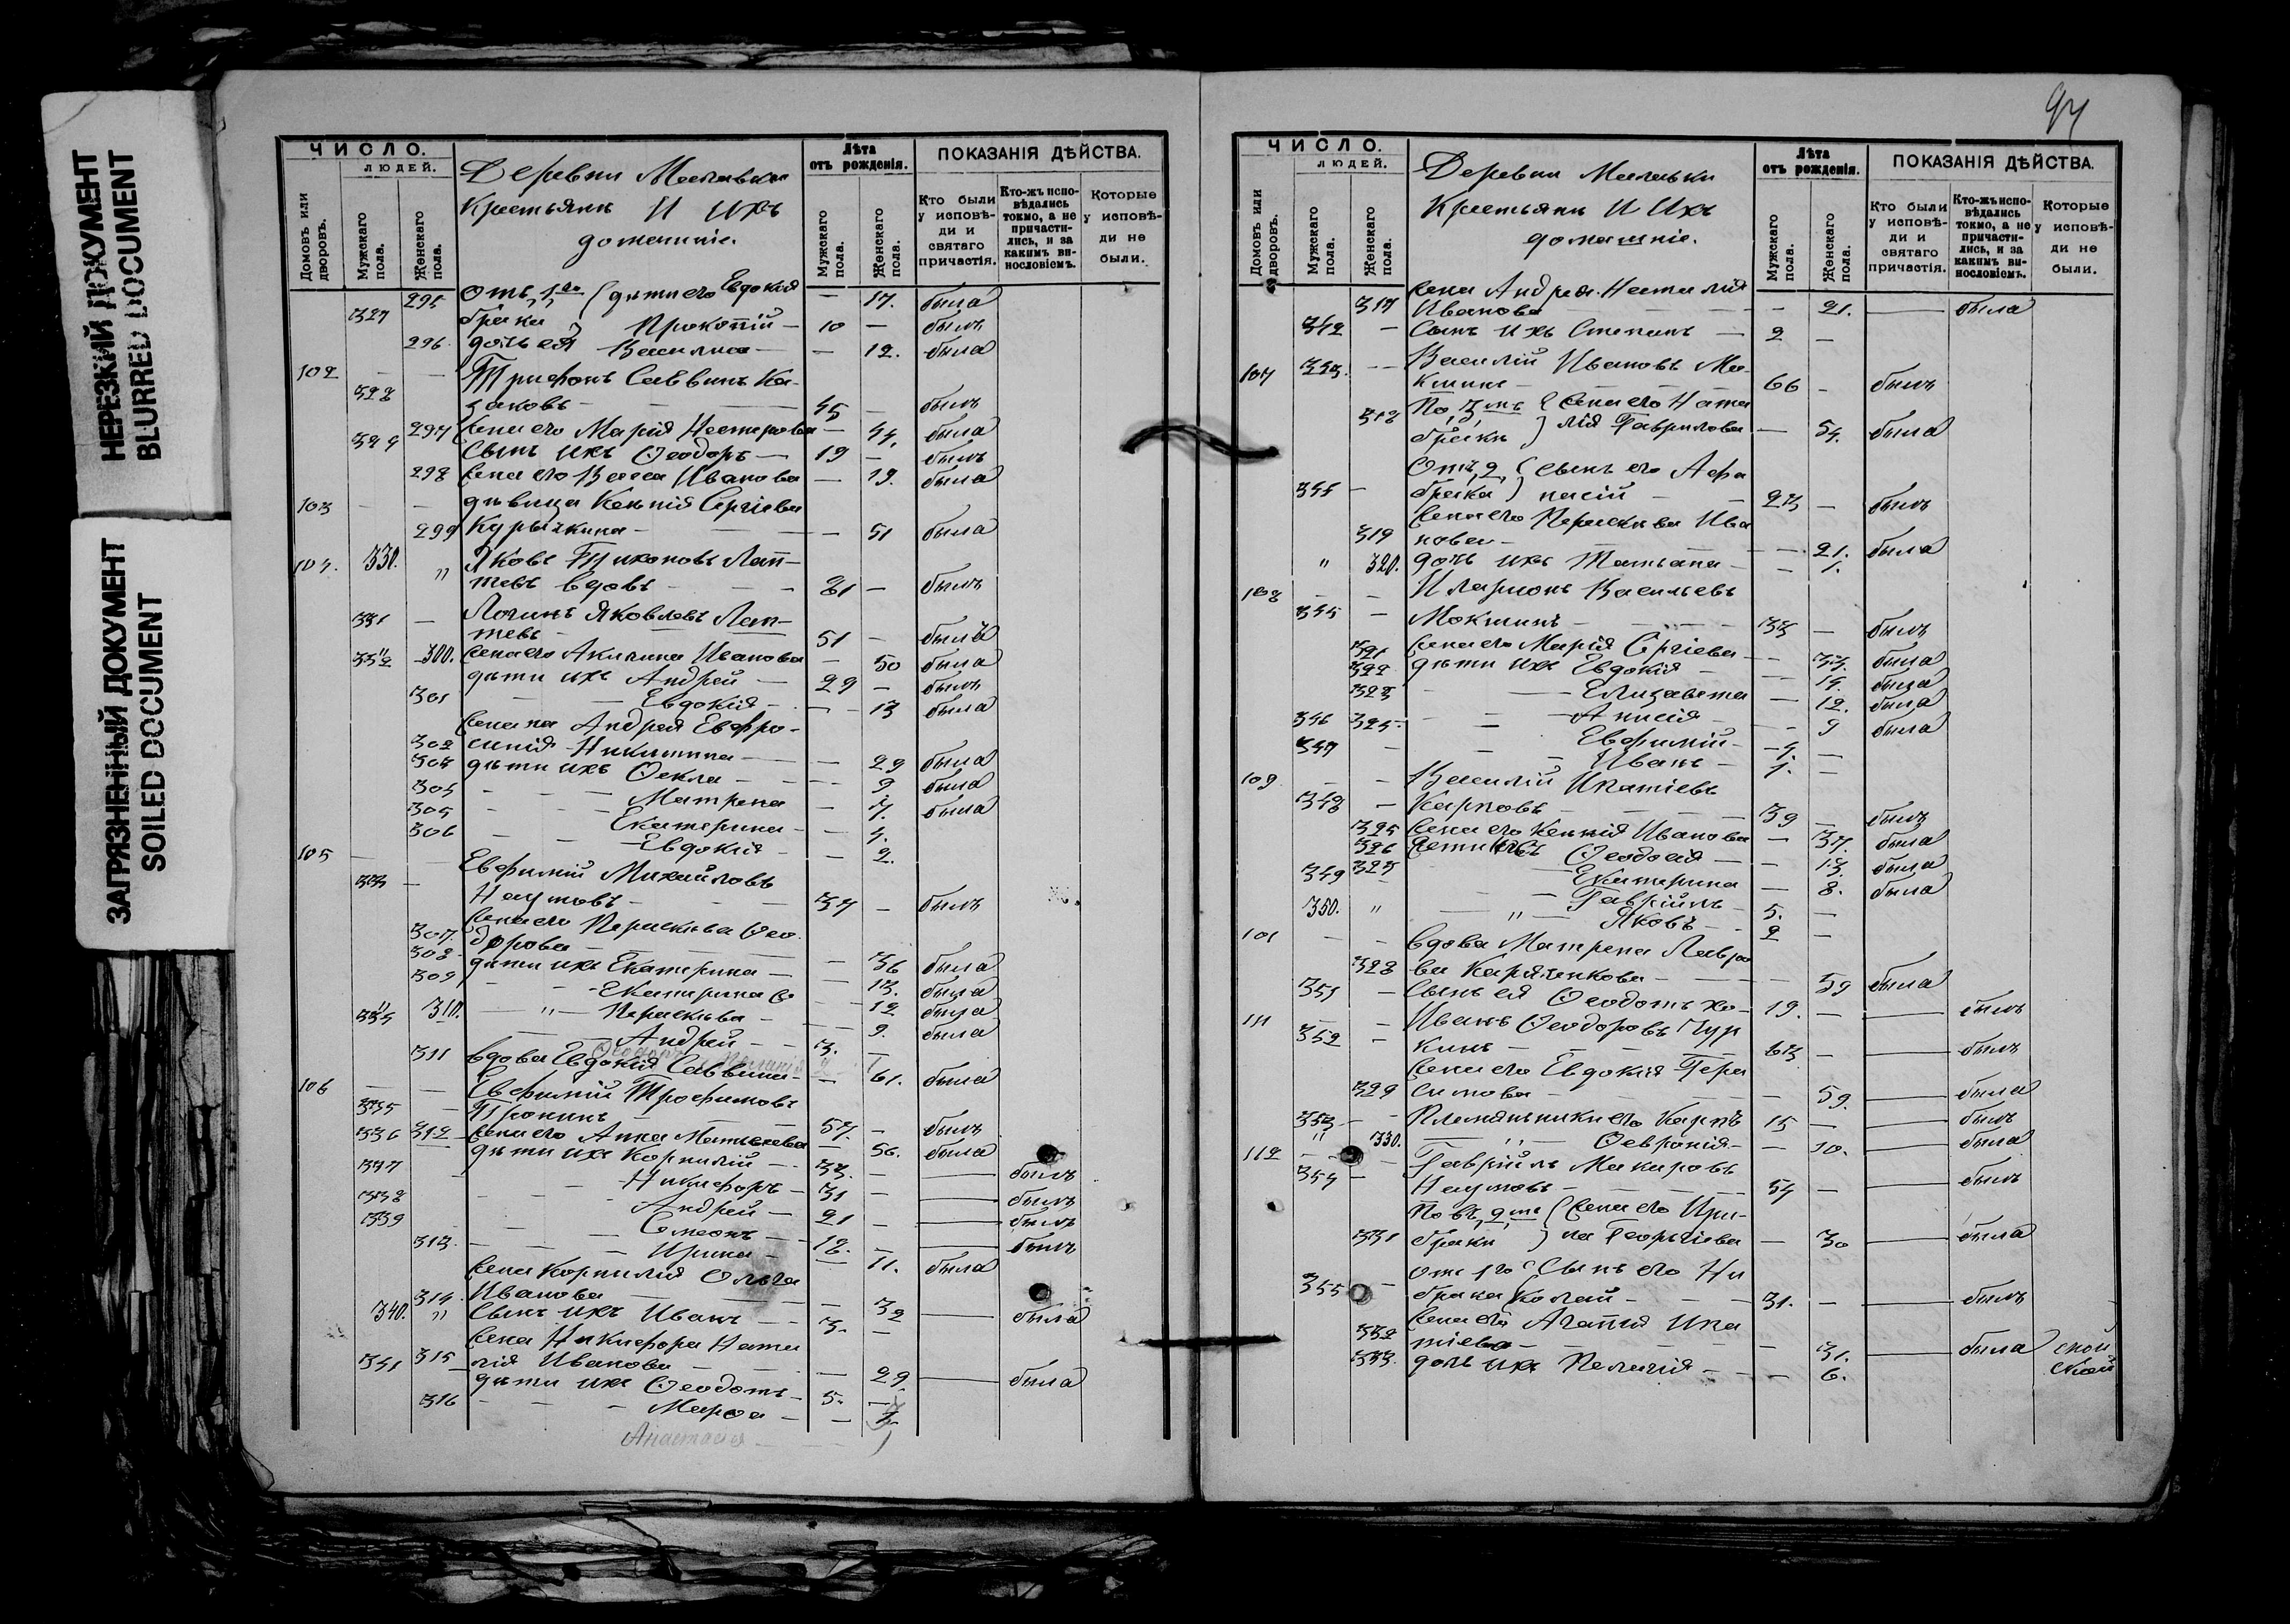 НЕРЕЗКИЙ ДОКУМЕНТ
BLURRED DOCUMENT
ЗАГРЯЗНЕННЫЙ ДОКУМЕНТ
SOILED DOCUMENT
ЧИСЛО.
ЛЮДЕЙ.
Домовъ или дворовъ.
Мужскаго пола.
Женскаго пола.
Деревни
Крестьянъ и ихъ
домашніе.
Лѣта отъ рожденія.
Мужскаго пола.
Женскаго пола.
ПОКАЗАНІЯ ДѢЙСТВА.
Кто были у исповѣди и святаго причастія.
Кто-жъ исповѣдались токмо, а не причастились, и за какимъ винословіемъ.
Которые у исповѣди не были.
295 Отъ 1го дѣти его Евдокія — 17. была
327 брака Прокопій — 10 — былъ
296 дочь ея Василиса — — 12. была
102 — — Трифонъ Саввинъ Ка-
328 заковъ — 45 — былъ
297 жена его Марія Нестерова — 44. была
329 сынъ ихъ Ѳеодоръ — 19 — былъ
298 жена его Васса Иванова — 19. была
103 — — дѣвица Ксенія Сергіева
299 Курычкина — — 51 была
104. 330. " Яковъ Тихоновъ Лап-
тевъ вдовъ — 81 — былъ
331 — Логинъ Яковлевъ Лап-
тевъ — 51 — былъ
300. жена его Акилина Иванова — 50 была
332 дѣти ихъ Андрей — 29 — былъ
301 Евдокія — — 13 была
жена Андрея Евфро-
302 синія Никитина — — 29 была
303 дѣти ихъ Ѳекла — — 9 была
304 Матрена — 7. была
305 Екатерина — — 4.
306 Евдокія — — 2.
105 — — Евфимій Михайловъ
333 — Наумовъ — 37 — былъ
жена его Параскева Ѳео-
307 дорова — — 36 была
308 дѣти ихъ Екатерина — — 13. была
309 Екатерина — 12 была
310. — " — Параскева — — 9. была
334 Андрей — 3. —
Ѳеодоръ
311 вдова Евдокія Саввина — — 61. была
106 — — Евфимій Трофимовъ
335 — Тронинъ — 57. — былъ
312 жена его Анна Матвѣева — 56. была
336 дѣти ихъ Корнилій — 33. — — былъ
337 Никифоръ — 31 — — былъ
338 Андрей — 21 — — былъ
339 Симеонъ — 18. — — былъ
313. Ирина — — 11. была
жена Корнилія Ольга
314 Иванова — — 32 — была
340. " сынъ ихъ Иванъ — 3. —
жена Никифора Ната-
315 лія Иванова — — 29. — была
341 дѣти ихъ Ѳеодотъ — 5. —
316 Марѳа — — 3
Анастасія —
94
ЧИСЛО.
ЛЮДЕЙ.
Домовъ или дворовъ.
Мужскаго пола.
Женскаго пола.
Деревни
Крестьянъ и ихъ
домашніе.
Лѣта отъ рожденія.
Мужскаго пола.
Женскаго пола.
ПОКАЗАНІЯ ДѢЙСТВА.
Кто были у исповѣди и святаго причастія.
Кто-жъ исповѣдались токмо, а не причастились, и за какимъ винословіемъ.
Которые у исповѣди не были.
жена Андрея Наталія
317 Иванова — — 21. — была
342 — Сынъ ихъ Степанъ — 2 —
107 343. — Василій Ивановъ Мо-
кшинъ — 66 — былъ
По 3мъ жена его Ната
318 бракѣ лія Гаврилова — 54. была
Отъ 2 сынъ его Афа
344 — брака насій — 23 — былъ
жена его Параскева Ива
319 нова — — 21. была
" 320. дочь ихъ Татьана — — 1.
108 — — Иларіонъ Васильевъ
345 — Мокшинъ — 33 — былъ
321 жена его Марія Сергіева — 33. была
322 дѣти ихъ Евдокія — — 14. была
323 Елизавета — 12. была
324. Анисія — — 9 была
346 Евфимій — 4. —
347 — Иванъ — 1. —
109 — — Василій Ипатіевъ
348 — Карповъ — 39 — былъ
325 жена его Ксенія Иванова — 37. была
326 дѣти ихъ Ѳеодосія — — 13. была
327 Екатерина — 8. была
349 Гавріилъ — 5. —
350. " — " — Яковъ — 2 —
101 — — вдова Матрена Лавро
328 ва — — 59 была
351 — сынъ ея Ѳеодотъ хо- 19. — — былъ
111 — — Иванъ Ѳеодоровъ Чур
352 — кинъ — 63 — — былъ
жена его Евдокія Гера
329 симова — — 59. — была
353 — — Племянники его Карпъ 15 — — былъ
" 330. — " — Ѳевронія — — 10. — была
112 — — Гавріилъ Макаровъ
354 — Наумовъ — 54 — — былъ
По въ 2мъ жена его Ири-
331 бракѣ на Георгіева — 30 — была
отъ 1го сынъ его Ни
355 — брака колай — 31. — — былъ
жена его Агапія Ипа
332 тіева — — 31. — была
333. дочь ихъ Пелагія — — 6.